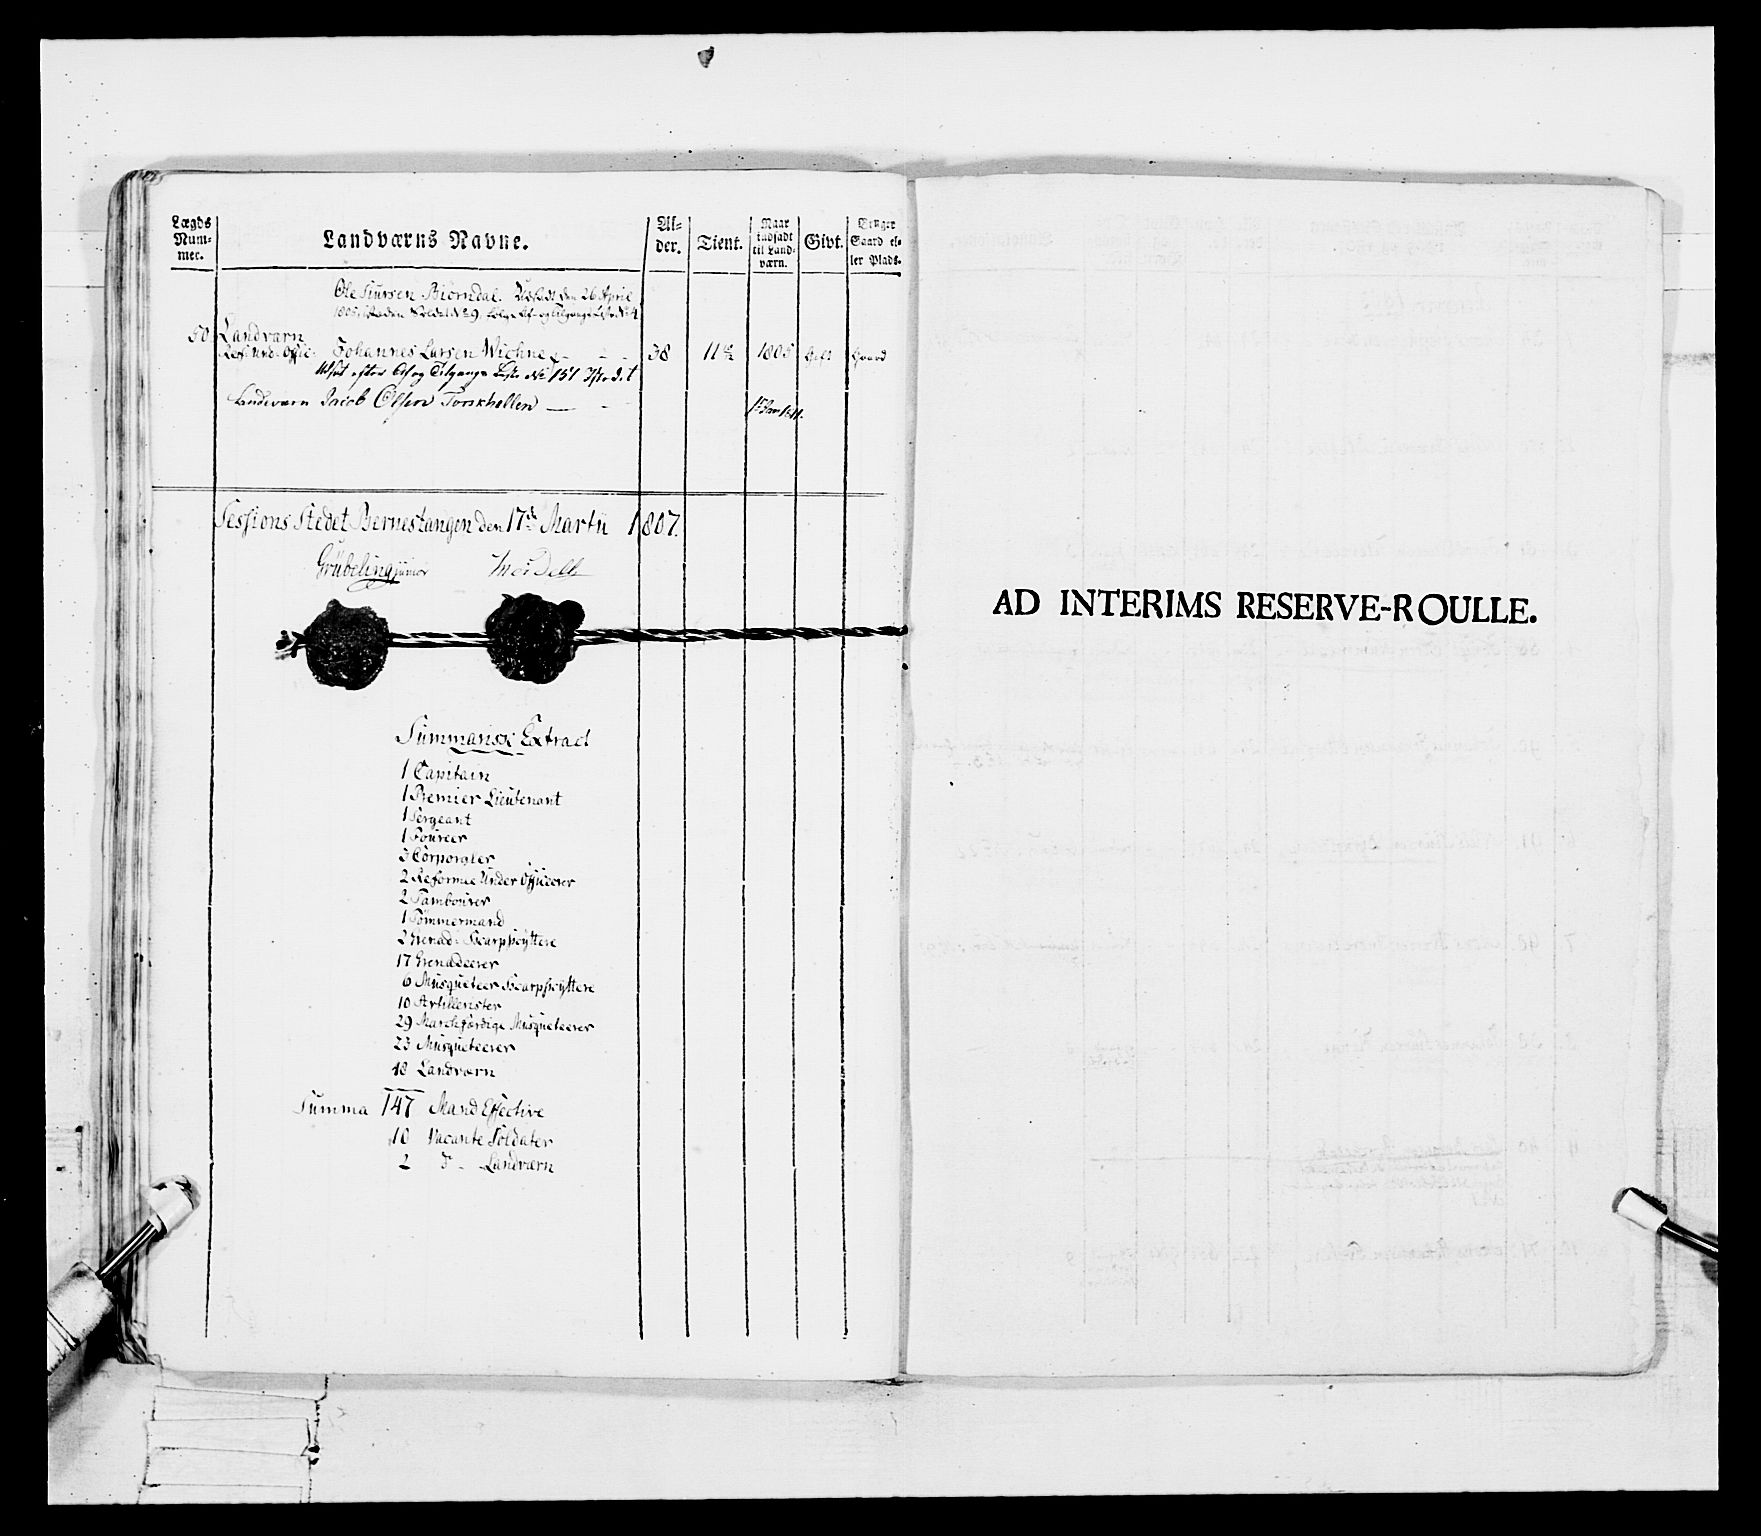 Lægds Num- mer.
Landværns Navne.
Al- der.
Tient.
Naar indsadt til Land- værn.
Givt.
Bruger Gaard el- ler Plads.
Ole Siursen Biorndal. Udsadt den 26 April
50 Landværn
Johannes Larsen Wichne 38 11 1805 Gift Gaard
Landværn Jacob Olsen Torskhellen
Sessions Stedet Bernestangen den 17de Martii 1807.
Grübeling junior
Summarisk Extract
1 Capitain
1 Premier Lieutenant
1 Sergeant
1 Foureer
3 Corporaler
2 Reforme Under Officerer
2 Tambourer
1 Tömmermand
2 Grenad: Skarpskyttere
17 Grenadeerer
6 Musqueteer Skarpskyttere
10 Artillerister
29 Marchfærdige Musqueteerer
23 Musqueteerer
Landværn
Summa 147 Mand Effective
10 Vacante Soldater
2 Landværn
AD INTERIMS RESERVE-ROULLE.